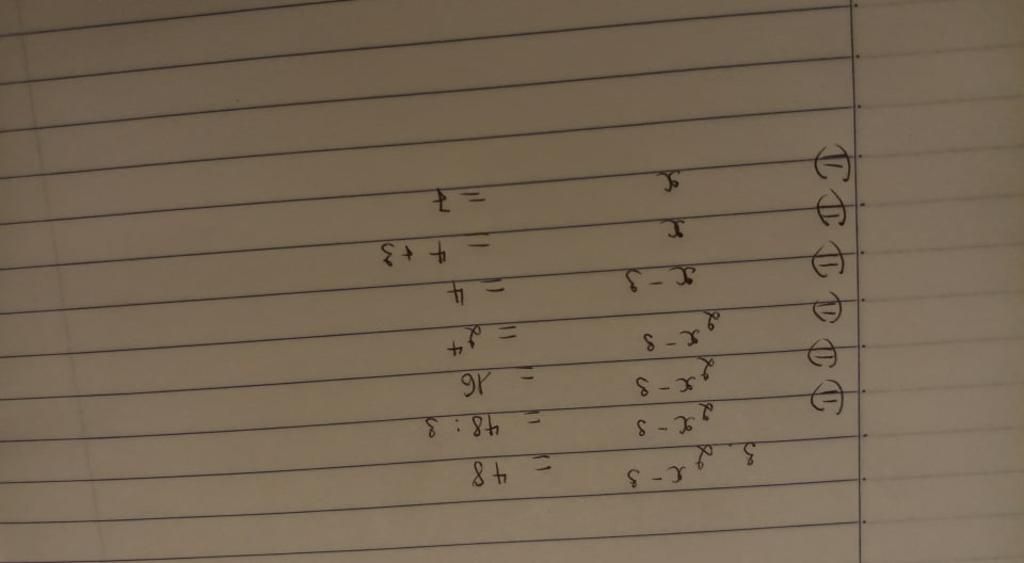 3. 2^{x-3} = 48
(=) 2^{x-3} = 48 : 3
(=) 2^{x-3} = 16
(=) 2^{x-3} = 2^4
(=) x - 3 = 4
(=) x = 4 + 3
(=) x = 7